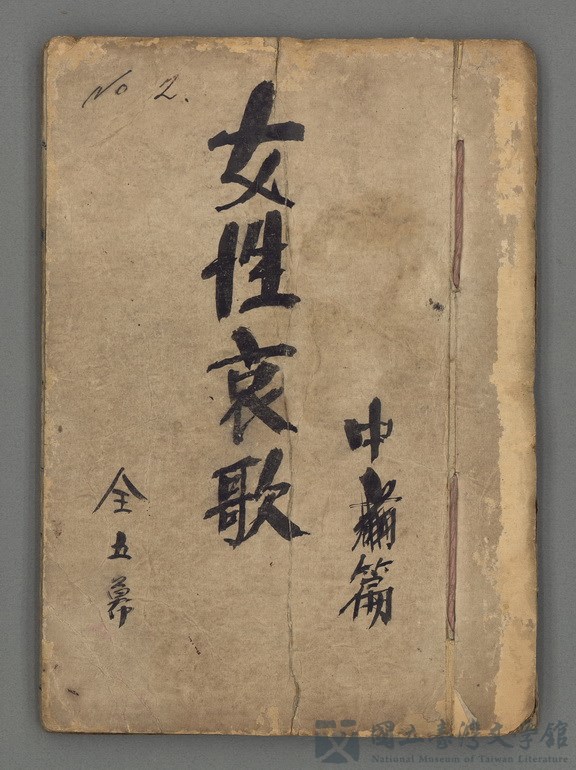 No 2.
中篇
女性哀歌
全五幕
國立臺灣文學館
National Museum of Taiwan Literature